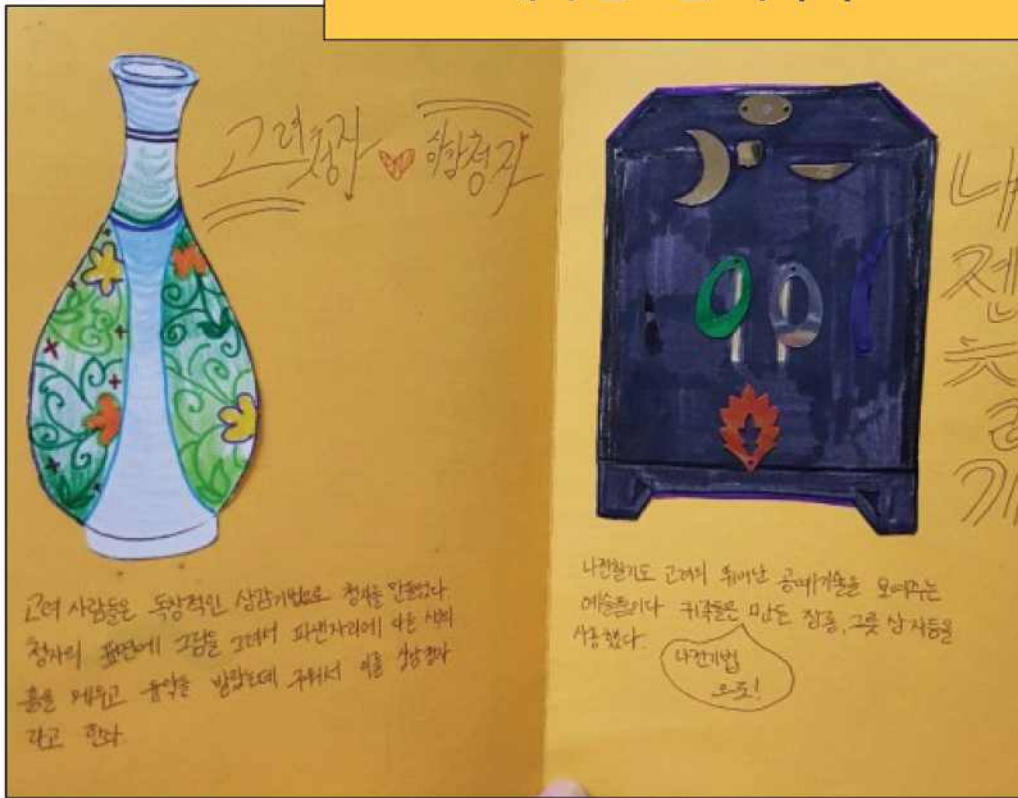 고려청자 상감청자
고려 사람들은 독창적인 상감기법으로 청자를 만들었다.
청자의 표면에 그림을 그려서 파낸자리에 다른 색의
흙을 메우고 유약을 발랐는데 구워서 이를 상감청자
라고 한다.
나전칠기
나전칠기도 고려의 뛰어난 공예기술을 보여주는
예술품이다 귀족들은 만든 장롱, 그릇 상자등을
사용했다.
나전기법
으로!